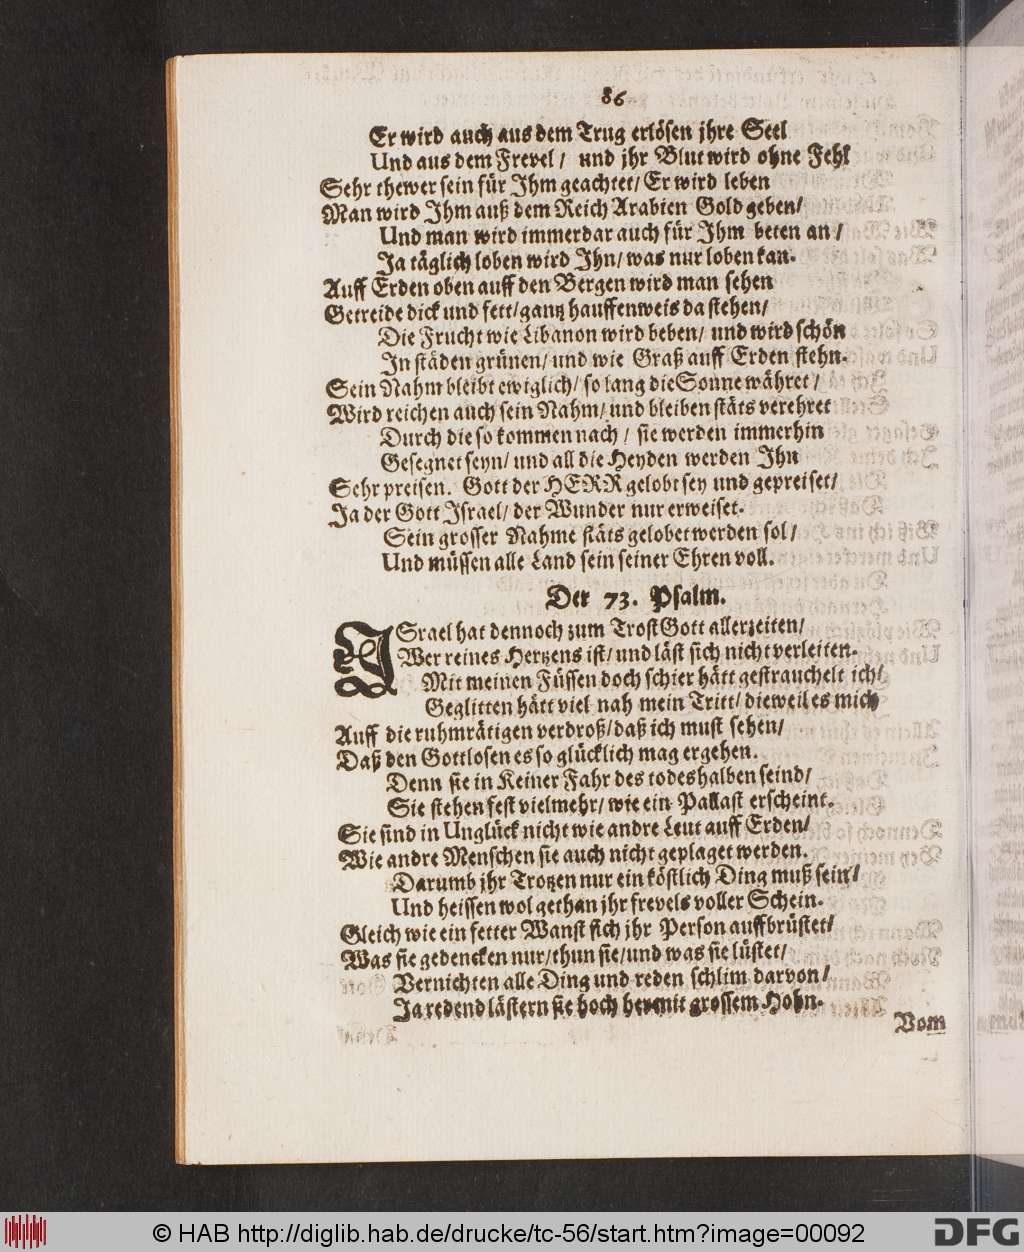 86
Er wird auch aus dem Trug erlösen jhre Seel
Und aus dem Frevel / und jhr Blut wird ohne Fehl
Sehr thewer sein für Ihm geachtet/ Er wird leben
Man wird Ihm auß dem Reich Arabien Gold geben/
Und man wird immerdar auch für Ihm beten an /
Ja täglich loben wird Ihn/ was nur loben kan.
Auff Erden oben auff den Bergen wird man sehen
Getreide dick und fett/ gantz hauffenweis da stehen/
Die Frucht wie Libanon wird beben/ und wird schön
In städen grünen/ und wie Graß auff Erden stehn.
Sein Nahm bleibt ewiglich/ so lang die Sonne währet /
Wird reichen auch sein Nahm/ und bleiben stäts verehret
Durch die so kommen nach / sie werden immerhin
Gesegnet seyn/ und all die Heyden werden Ihn
Sehr preisen. Gott der HERR gelobt sey und gepreiset/
Ja der Gott Israel/ der Wunder nur erweiset.
Sein grosser Nahme stäts gelobet werden sol /
Und müssen alle Land sein seiner Ehren voll.
Der 73. Psalm.
ISrael hat dennoch zum Trost Gott allerzeiten/
Wer reines Hertzens ist/ und läst sich nicht verleiten.
Mit meinen Füssen doch schier hätt gestrauchelt ich/
Geglitten hätt viel nah mein Tritt/ dieweil es mich
Auff die ruhmrätigen verdroß/ daß ich must sehen/
Daß den Gottlosen es so glücklich mag ergehen.
Denn sie in Keiner Fahr des todes halben seind/
Sie stehen fest vielmehr/ wie ein Pallast erscheint.
Sie sind in Unglück nicht wie andre Leut auff Erden/
Wie andre Menschen sie auch nicht geplaget werden.
Darumb jhr Trotzen nur ein köstlich Ding muß sein/
Und heissen wol gethan jhr frevels voller Schein.
Gleich wie ein fetter Wanst sich jhr Person auffbrüstet/
Was sie gedencken nur/ thun sie/ und was sie lüstet/
Vernichten alle Ding und reden schlim darvon/
Ja redend lästern sie hoch her mit grossem Hohn.
Vom
© HAB http://diglib.hab.de/drucke/tc-56/start.htm?image=00092
DFG